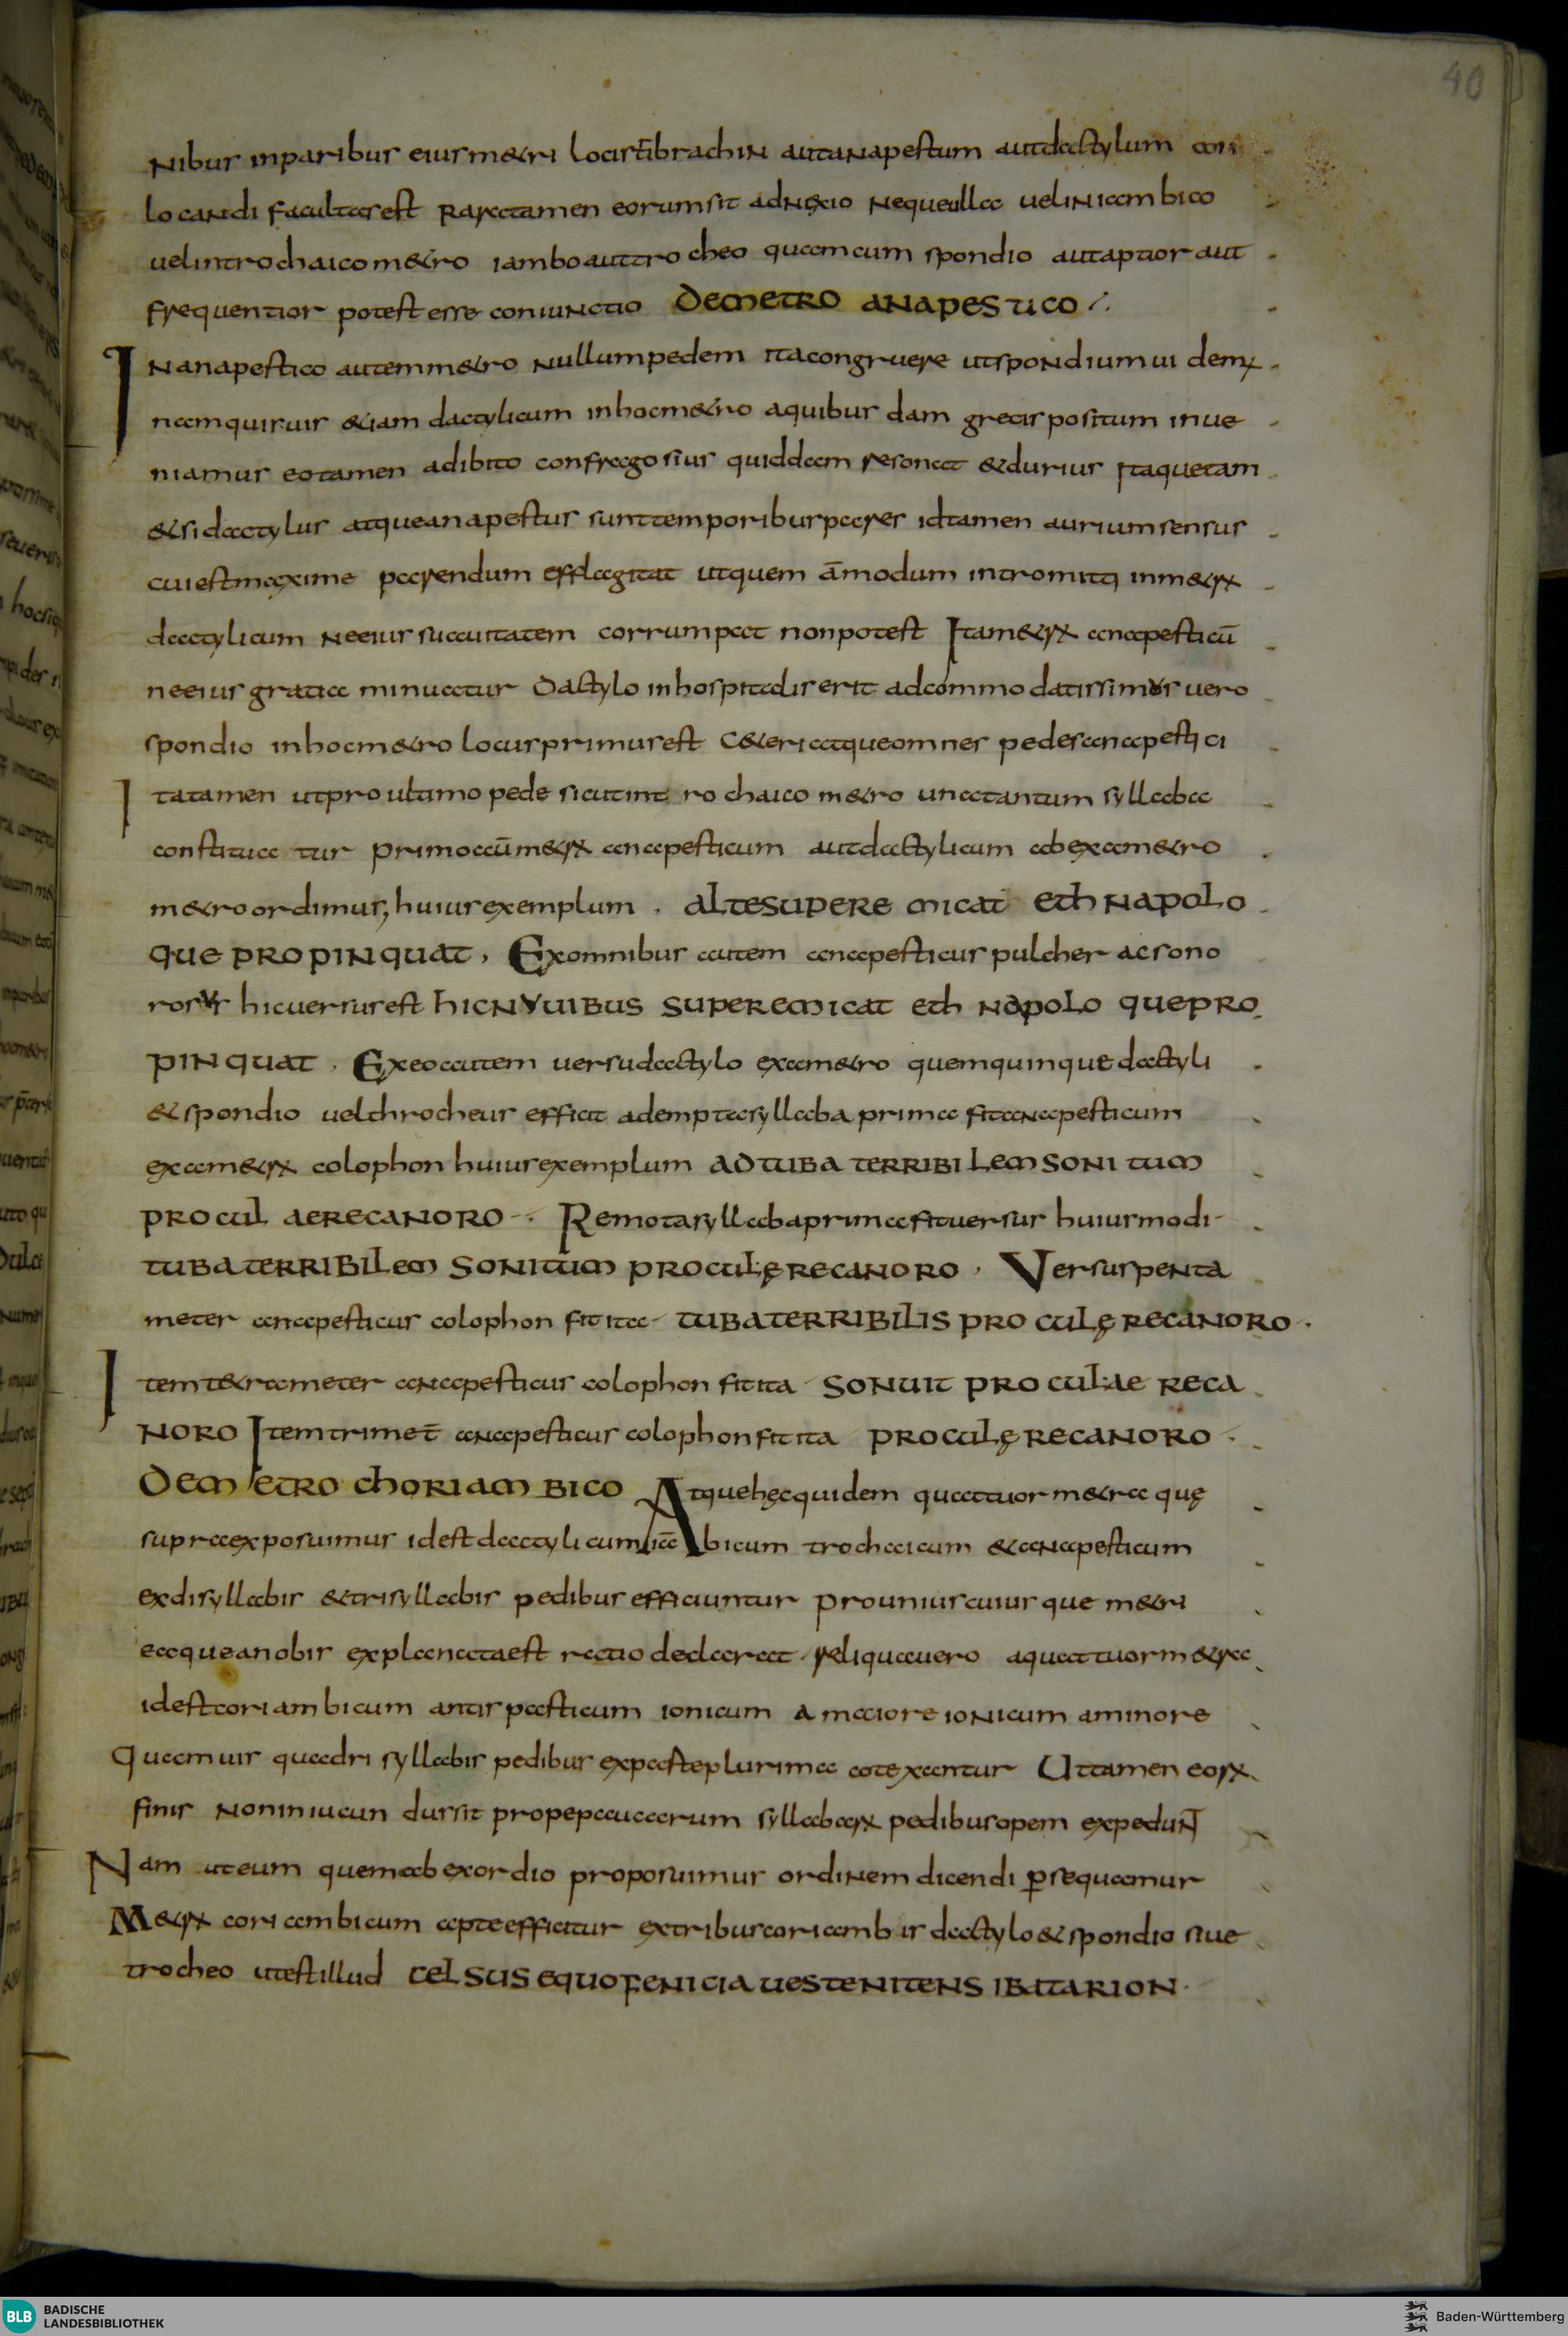 40
nibus inparibus eius metri locis tribrachin aut anapestum aut dactylum con
locandi facultas est Rara tamen eorum sit adnexio neque ulla uel in iambico
uel in trochaico metro iambo aut trocheo quam cum spondio aut aptior aut
frequentior potest esse coniunctio DE METRO ANAPESTICO
In anapestico autem metro nullum pedem ita congruere ut spondium uidem;
nam quisuis etiam dactylicum in hoc metro a quibusdam grecis positum inue
niamus eo tamen adibito confragosius quiddam resonat et durius Itaque tam
etsi dactylus atque anapestus sunt temporibus pares id tamen aurium sensus
cui est maxime parendum efflagitat ut quem āmodum intromitti in metrꝝ
dactylicum ne eius succuitatem corrumpat non potest Ita metrꝝ anapesticū
ne eius gratia minuatur Dactylo inhospitadis erit adcommodatissimus uero
spondio in hoc metro locus primus est Ceteri atque omnes pedes anapestici
tatamen ut pro ultimo pede sicut int rochaico metro una tantum syllaba
constitua tur primo cū metrꝝ anapesticum aut dactylicum ab exametro
metro ordimur, huius exemplum . ALTE SUPEREMICAT ETHNA POLO
QUE PROPINQUAT , Ex omnibus autem anapesticus pulcher ac sono
rosus hic uersus est HIC NUUIBUS SUPEREMICAT ETHNA POLO QUE PRO
PINQUAT . Ex eo autem uersu dactylo exametro quem quinque dactyli
et spondio uel throcheus efficit adempta syllaba prima fit anapesticum
exametrꝝ colophon huius exemplum AD TUBA TERRIBILEM SONITUM
PROCUL AERE CANORO . Remota syllaba prima fit uersus huius modi
TUBA TERRIBILEM SONITUM PROCUL ĘRE CANORO , Versus penta
meter anapesticus colophon fit ita TUBA TERRIBILIS PROCUL ĘRE CANORO .
Item tetrameter anapesticus colophon fit ita SONUIT PROCUL AERE CA
NORO Item trimet̄ anapesticus colophon fit ita PROCUL ĘRE CANORO
DE METRO CHORIAMBICO Atque hęc quidem quattuor metra quę
supra exposuimus id est dactylicum iābicum trochaicum et anapesticum
ex disyllabis et trisyllabis pedibus efficiuntur pro unius cuius que metri
eaque a nobis explanata est ratio declarat reliqua uero a quattuor metra
id est coriambicum antispasticum ionicum a maiore ionicum a minore
Quamuis quadrisyllabis pedibus ex paste plurima cotexantur Ut tamen eorꝝ
finis non iniucundus sit prope paucarum syllabarꝝ pedibus opem expedunt
Nam ut eum quem ab exordio proposuimus ordinem dicendi ꝑsequamur
Metrꝝ coriambicum apte efficitur ex tribus coriambis dactylo et spondio siue
trocheo ut est illud CELSUS EQUO FENICIA UESTE NITENS IBAT ARION
BLB BADISCHE
LANDESBIBLIOTHEK
Baden-Württemberg